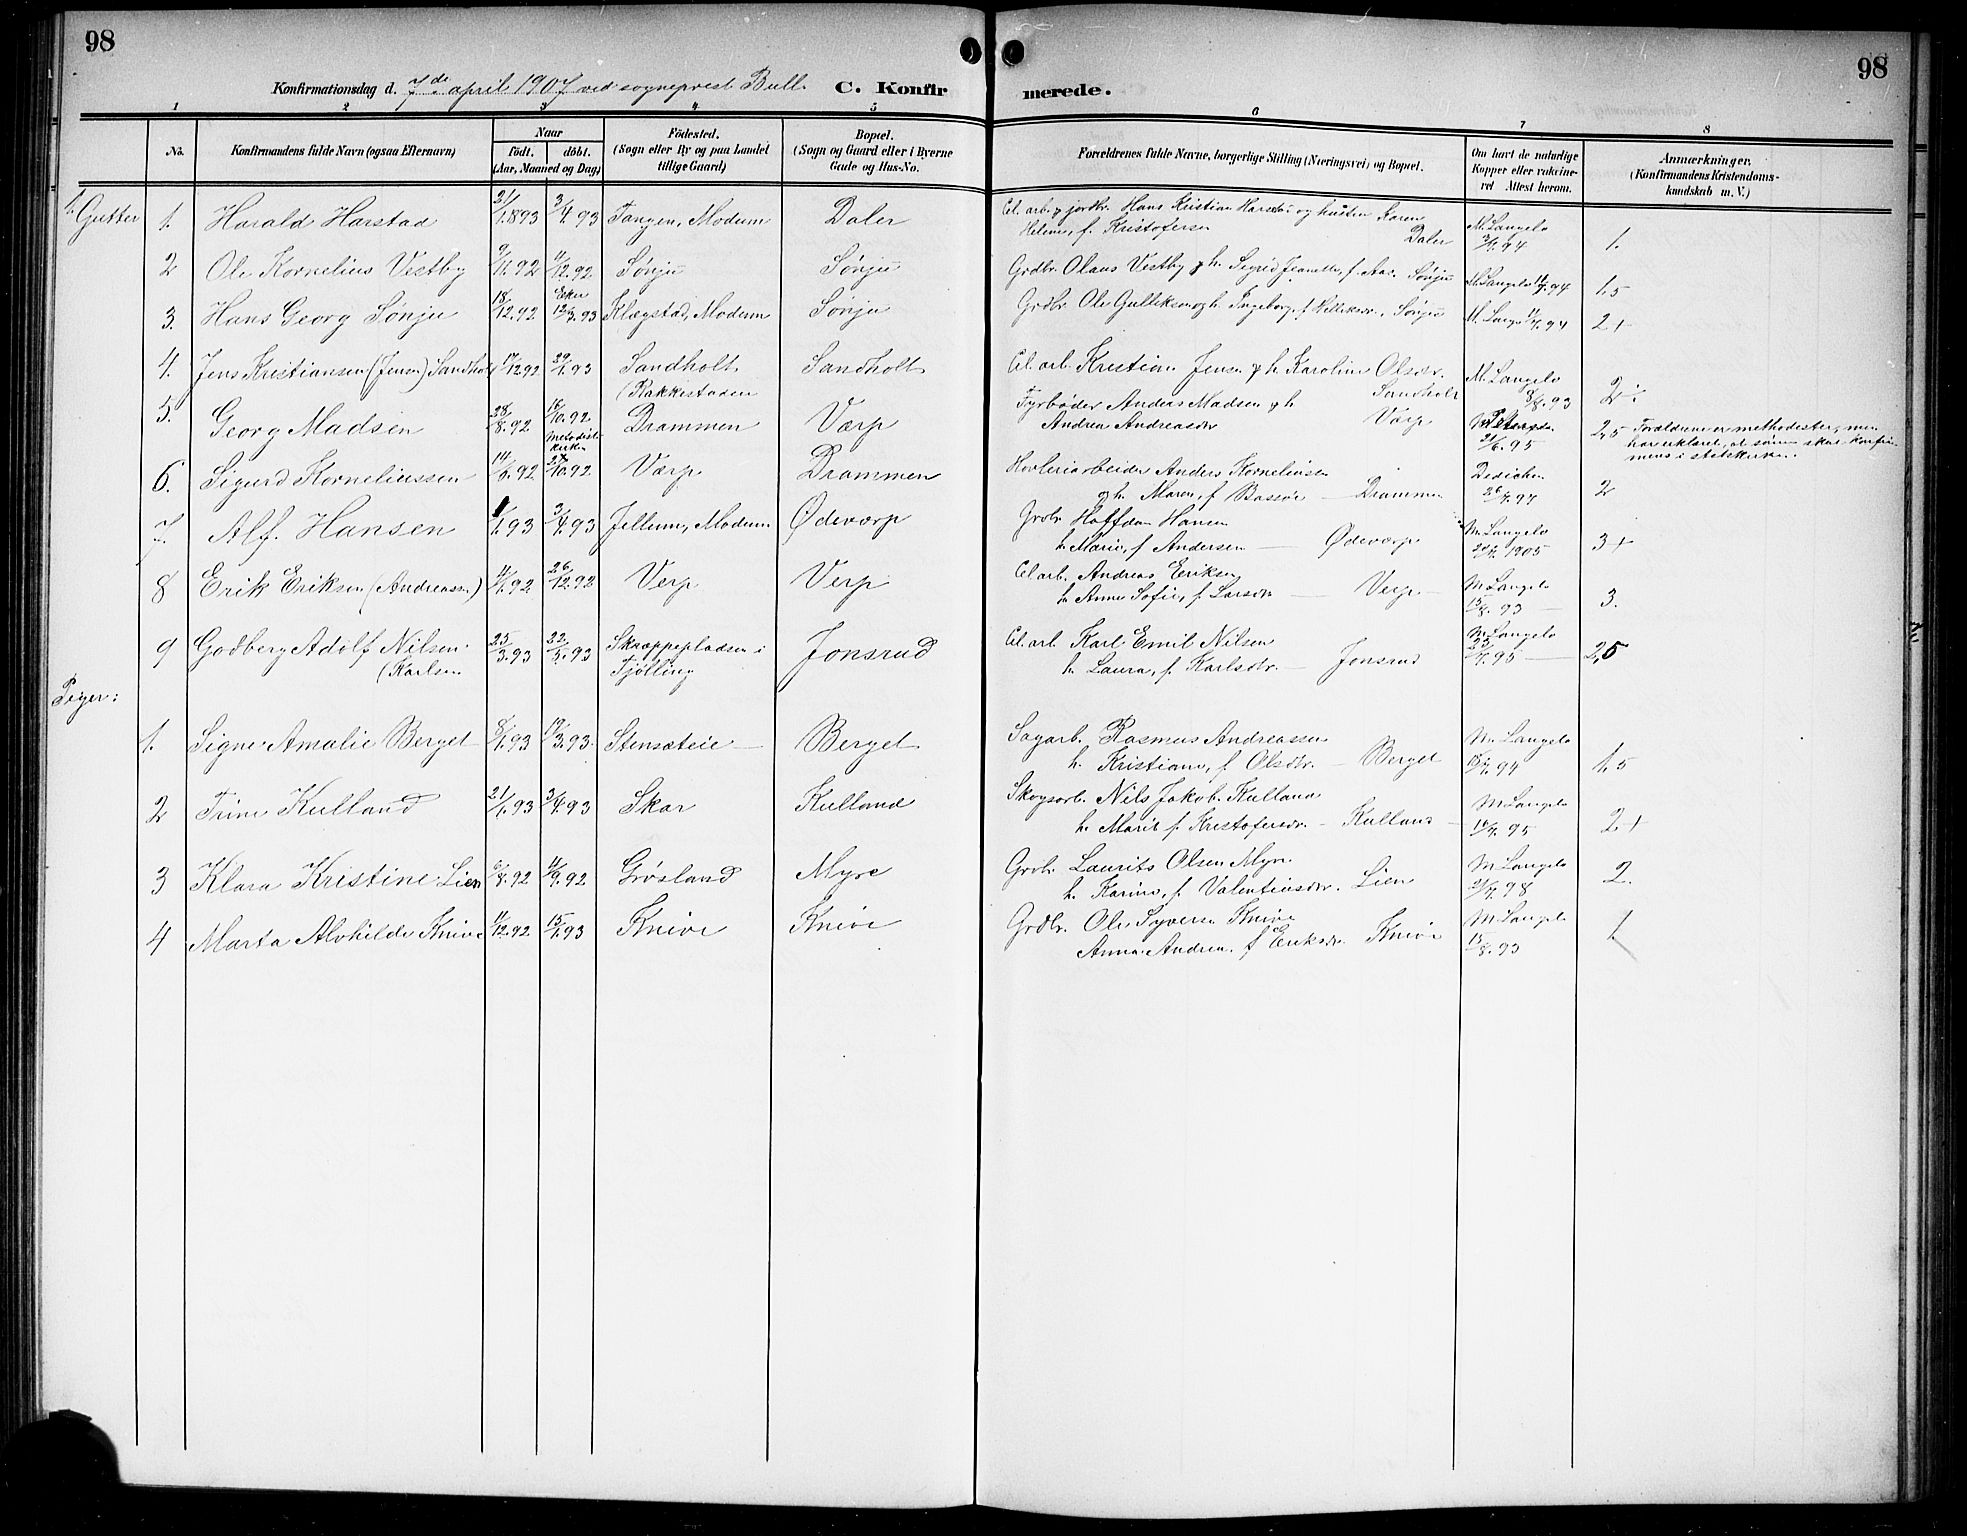 98
98
Konfirmationsdag d. 7de april 1907 ved sogneprest Bull. C. Konfirmerede.
1 2 3 4 5 6 7 8
No.
Konfirmandens fulde Navn (ogsaa Efternavn)
Naar
födt. döbt.
(Aar, Maaned og Dag)
Födested.
(Sogn eller By og paa Landet
tillige Gaard)
Bopæl.
(Sogn og Gaard eller i Byerne
Gade og Hus-No.
Forældrenes fulde Navne, borgerlige Stilling (Næringsvei) og Bopæl.
Om havt de naturlige
Kopper eller vakcine-
ret Attest herom.
Anmærkninger.
(Konfirmandens Kristendoms-
kundskab m. V.)
Gutter
1. Harald Harstad 21/1.893 3/4.93 Tangen, Modum Daler
Hans Kristian Harstad og hustru Karen
Helene, f. Kristofersen Daler M. Langelo 94 1.
2 Ole Kornelius Vestby 9/11.92 11/12.92 Sønju Sønju
Grdbr. Olaus Vestby og h. Sigrid Jeanette, f. Aas. Sønju M. Langelo 94 1,5
3. Hans Georg Sønju 18/12.92 Eker 12/3.93 Klægstad, Modum Sønju
Grdbr. Ole Gulliksen og h. Ingeborg, f. Helliksdr., Sønju 94 2+
4. Jens Kristiansen (Jensen) Sandholt 17/12.92 29/1.93 Sandholt Sandholt
Cel. arb. Kristian Jensen og h. Karoline Olsdr. Sandholt M. Langelo 8/8.93 2÷
5. Georg Madsen 28/8.92 16/10.92 Metodistkirken (Rakkestaden Drammen Værp
Fyrbøder Anders Madsen og h
Andrea Andreasdr Værp 21/6.95 2,5 Forældrene er methodester, men
har erklæret, at sønnen skal konfir
meres i statskirken.
6. Sigurd Korneliussen 14/6.92 27/10.92 Værp Drammen
Høvleriarbeider Anders Korneliusen
og h. Maren, f. Bassøe — Drammen Dedichen 26/4.97 2
7. Alf. Hansen 1/1.93 3/4.93 Jellum, Modum Ødeværp
Grdbr. Halfdan Hansen
h. Marie, f. Andersen — Ødeværp M Langelo 1905 3+
8 Erik Eriksen (Andreassn) 11/1.92 26/12.92 Verp Verp
Cel. arb. Andreas Eriksen
h. Anne Sofie, f. Larsdr — Verp — M Langelo 15/8.93 3.
9 Godberg Adolf Nilsen 25/3.93 22/5.93 Skræppepladsen i Jonsrud
(Karlsen Tjølling
Cel. arb. Karl Emil Nilsen
h. Laura, f. Karlsdtr. — Jonsrud M Langelo 95 — 2,5
Piger:
1. Signe Amalie Berget 8/1.93 19/3.93 Stensæteie Berget
Sagarb. Rasmus Andreassen
h. Kristiane, f. Olsdtr. — Berget M Langelo 94 1,5
2 Trine Kulland 21/1.93 3/4.93 Skar Kulland
Skogsarb. Nils Jakob. Kulland
h. Marie f. Kristofersdr. — Kulland — M Langelo 95 2+
3 Klara Kristine Lien 6/8.92 11/9.92 Grøsland Myre
Grdbr. Laurits Olsen Myre
h. Karine, f. Valentinsdr. Lien M Langelo 98 2.
4 Marta Alvhilde Knive 11/12.92 15/1.93 Knive Knive
Grdbr. Ole Syversen Knive
Anna Andrea. f Eriksdr. Knive M Langelo 15/8.93 1